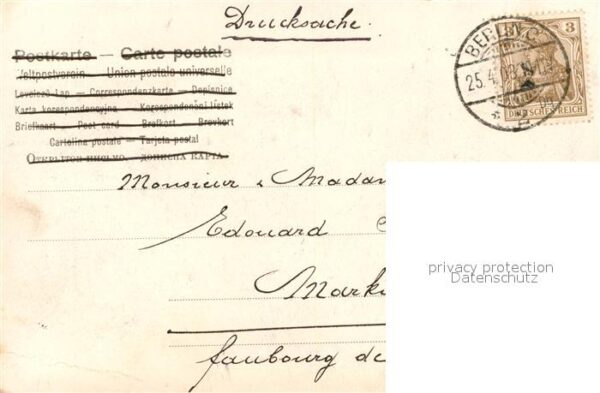 Drucksache.
Postkarte — Carte postale
Weltpostverein. — Union postale universelle
Levelező-Lap — Correspondenzkarte — Dopisnice
Karta korespondencyjna — Korespondenční lístek
Briefkaart — Post card — Brefkort — Brevkort
Cartolina postale — Tarjeta postal
Открытое письмо. — дописна карта
3
BERLIN C
25.4.
DEUTSCHES REICH
Monsieur & Madam
Edouard
Marki
faubourg de
privacy protection
Datenschutz